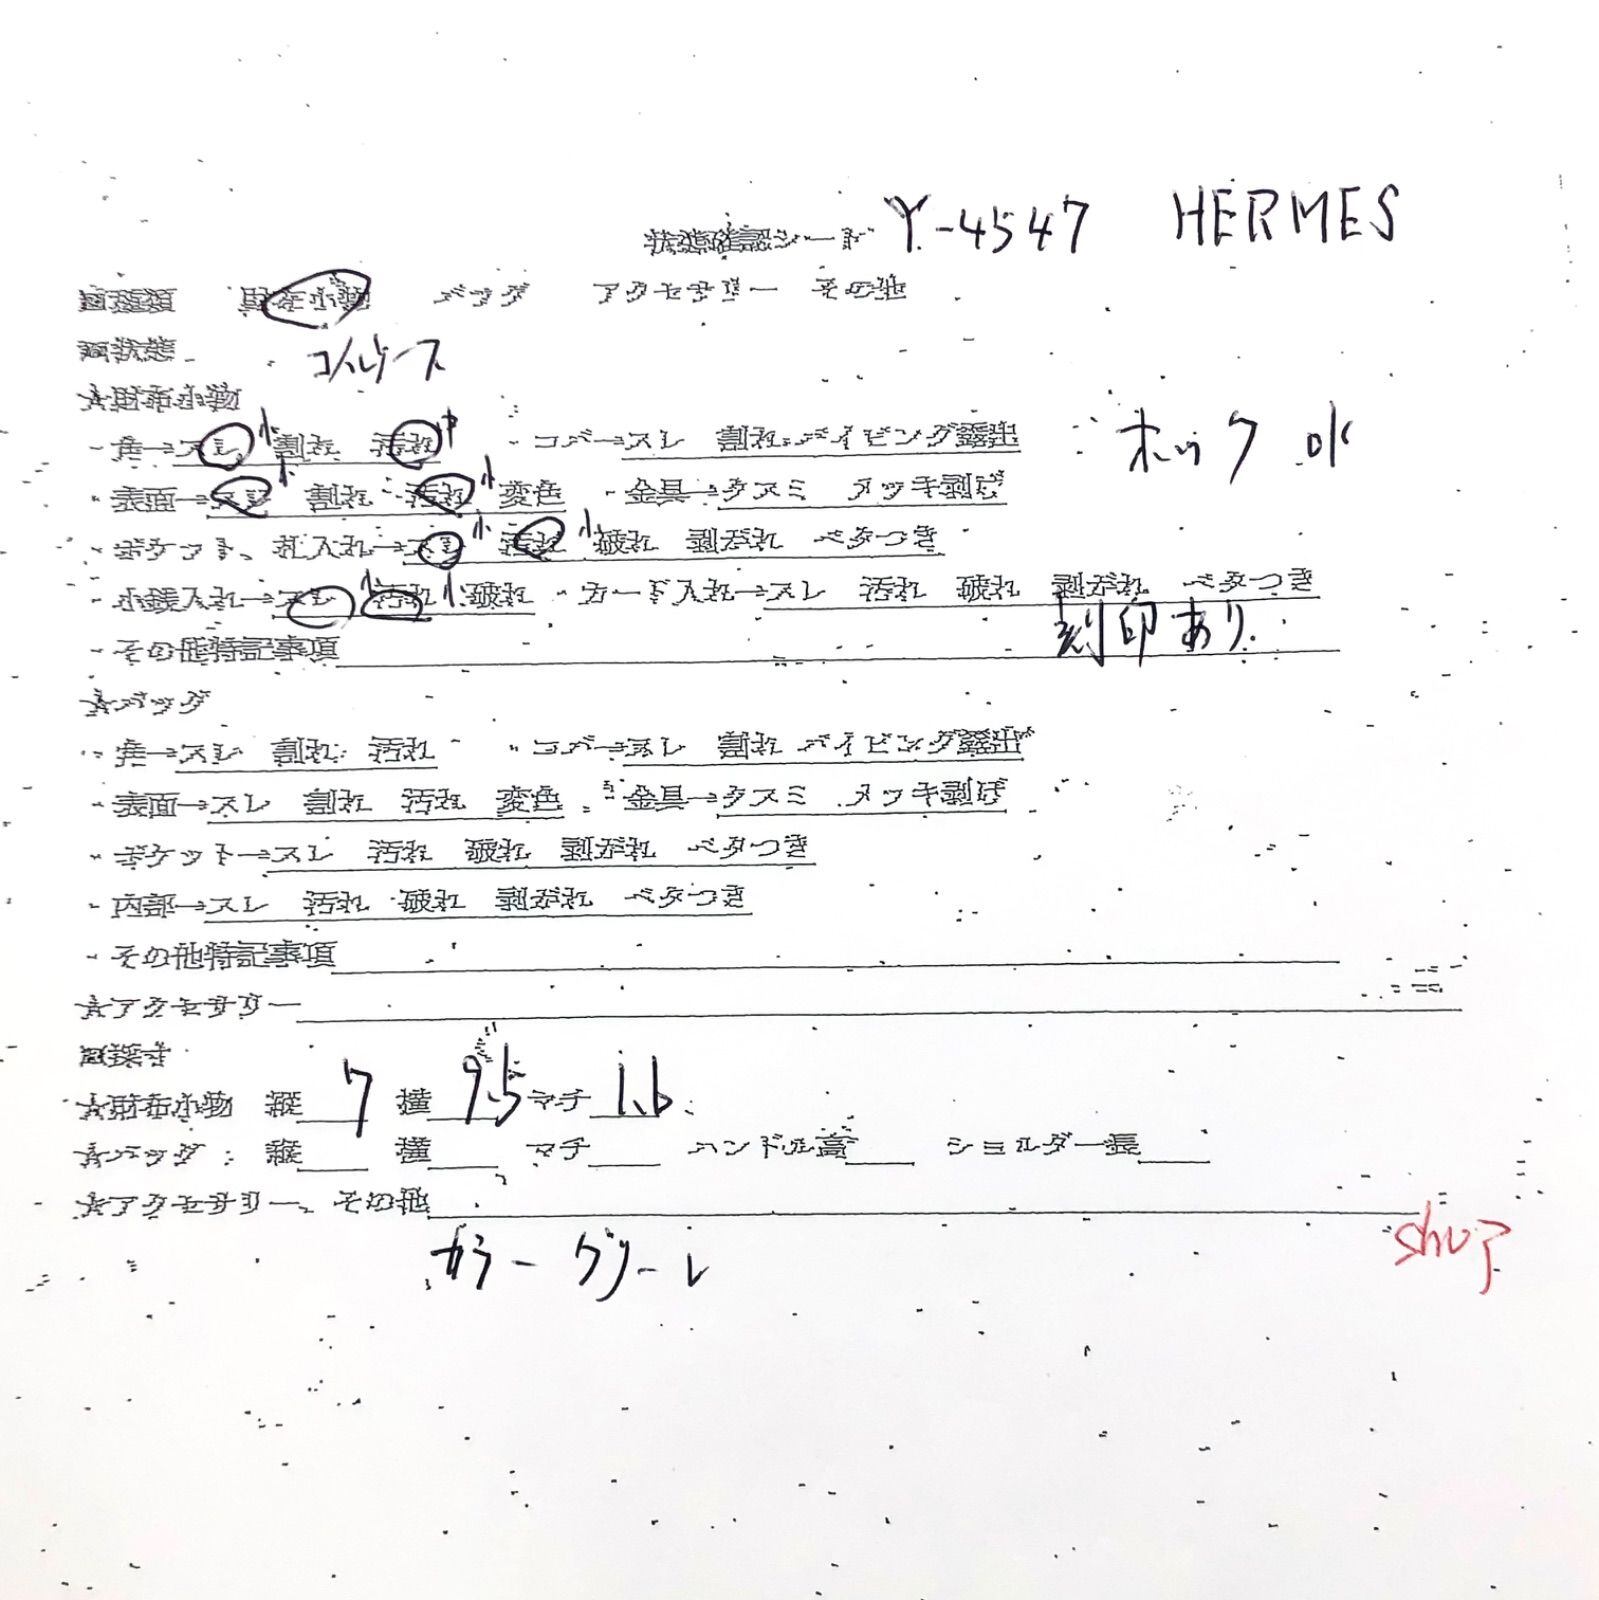 状態確認シート Y-4547 HERMES
□種類 財布小物 バッグ アクセサリー その他
□状態 コインケース
☆財布小物
・角→スレ 小 割れ 汚れ 中 ・コバ→スレ 割れ パイピング露出 ホック OK
・表面→スレ 小 割れ 汚れ 小 変色 ・金具→クスミ メッキ剥げ
・ポケット、札入れ→スレ 小 汚れ 小 破れ 剥がれ ベタつき
・小銭入れ→スレ 小 汚れ 小 破れ ・カード入れ→スレ 汚れ 破れ 剥がれ ベタつき
・その他特記事項 刻印あり
☆バッグ
・角→スレ 割れ 汚れ ・コバ→スレ 割れ パイピング露出
・表面→スレ 割れ 汚れ 変色 ・金具→クスミ メッキ剥げ
・ポケット→スレ 汚れ 破れ 剥がれ ベタつき
・内部→スレ 汚れ 破れ 剥がれ ベタつき
・その他特記事項
☆アクセサリー
□採寸
☆財布小物 縦 7 横 9.5 マチ 1.6
☆バッグ 縦 横 マチ ハンドル高 ショルダー長
☆アクセサリー、その他
カラー グリーン